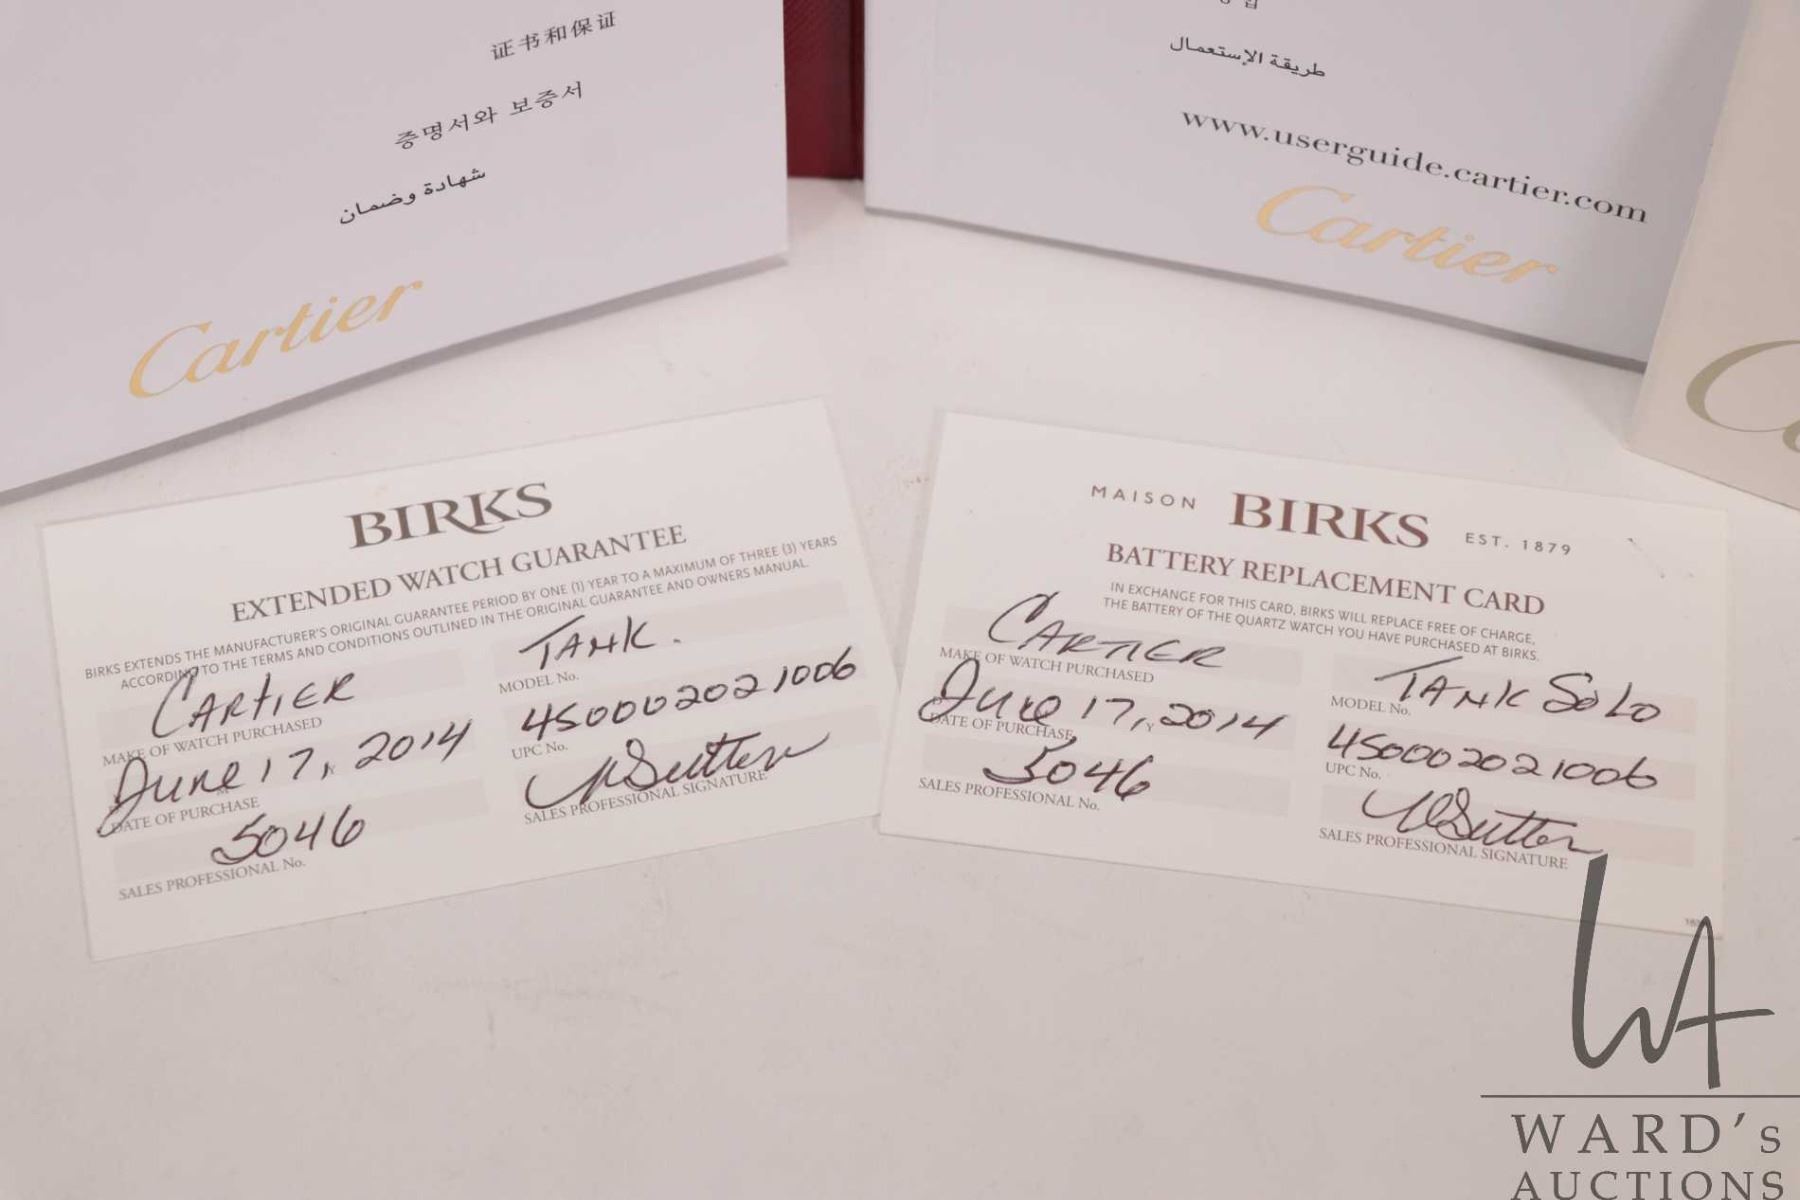 证书和保证
증명서와 보증서
شهادة وضمان
Cartier
طريقة الإستعمال
www.userguide.cartier.com
Cartier
BIRKS
EXTENDED WATCH GUARANTEE
BIRKS EXTENDS THE MANUFACTURER'S ORIGINAL GUARANTEE PERIOD BY ONE (1) YEAR TO A MAXIMUM OF THREE (3) YEARS
ACCORDING TO THE TERMS AND CONDITIONS OUTLINED IN THE ORIGINAL GUARANTEE AND OWNERS MANUAL.
CARTIER
MAKE OF WATCH PURCHASED
TANK.
MODEL No.
June 17, 2014
DATE OF PURCHASE
450002021006
UPC No.
5046
SALES PROFESSIONAL No.
SALES PROFESSIONAL SIGNATURE
MAISON BIRKS EST. 1879
BATTERY REPLACEMENT CARD
IN EXCHANGE FOR THIS CARD, BIRKS WILL REPLACE FREE OF CHARGE,
THE BATTERY OF THE QUARTZ WATCH YOU HAVE PURCHASED AT BIRKS.
CARTIER
MAKE OF WATCH PURCHASED
TANK SOLO
MODEL No.
June 17, 2014
DATE OF PURCHASE
450002021006
UPC No.
5046
SALES PROFESSIONAL No.
SALES PROFESSIONAL SIGNATURE
WA
WARD's
AUCTIONS